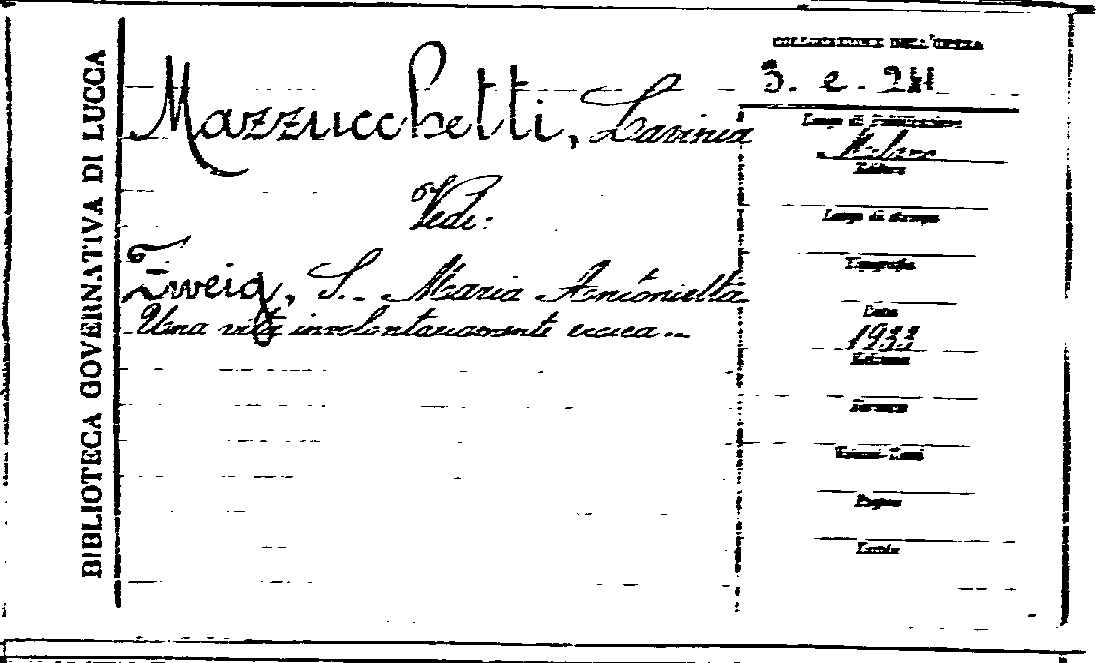 BIBLIOTECA GOVERNATIVA DI LUCCA
Mazzucchetti, Lavinia
Vedi:
Zweig, S. Maria Antonietta
Una vita involontariamente eroica...
COLLOCAZIONE DELL'OPERA
3. e. 241
Luogo di Pubblicazione
Milano
Editore
Luogo di stampa
Tipografia
Data
1933
Edizione
Formato
Pagine